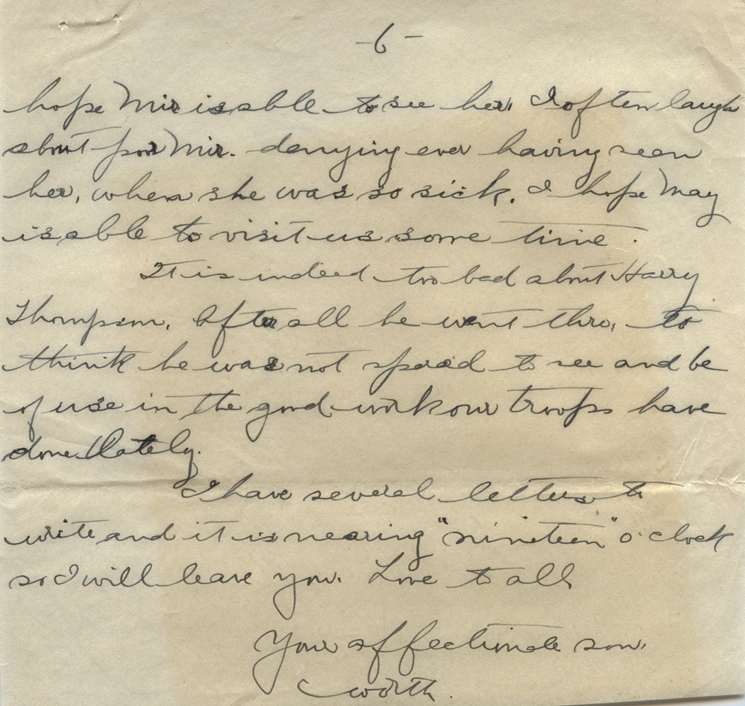 -6-
hope Mir is able to see her. I often laugh
about poor Mir. denying ever having seen
her, when she was so sick. I hope May
is able to visit us some time.
It is indeed too bad about Harry
Thompson. After all he went thro, to
think he was not spared to see and be
of use in the good work our troops have
done lately.
I have several letters to
write and it is nearing "nineteen" o'clock
so I will leave you. Love to all
Your affectionate son.
Worth.